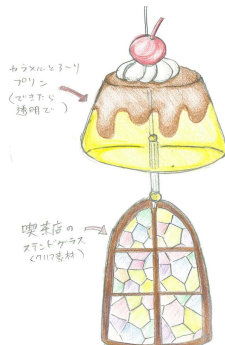 カラメルとろ〜り
プリン
(できたら
透明で)
喫茶店の
ステンドグラス
(クリア素材)